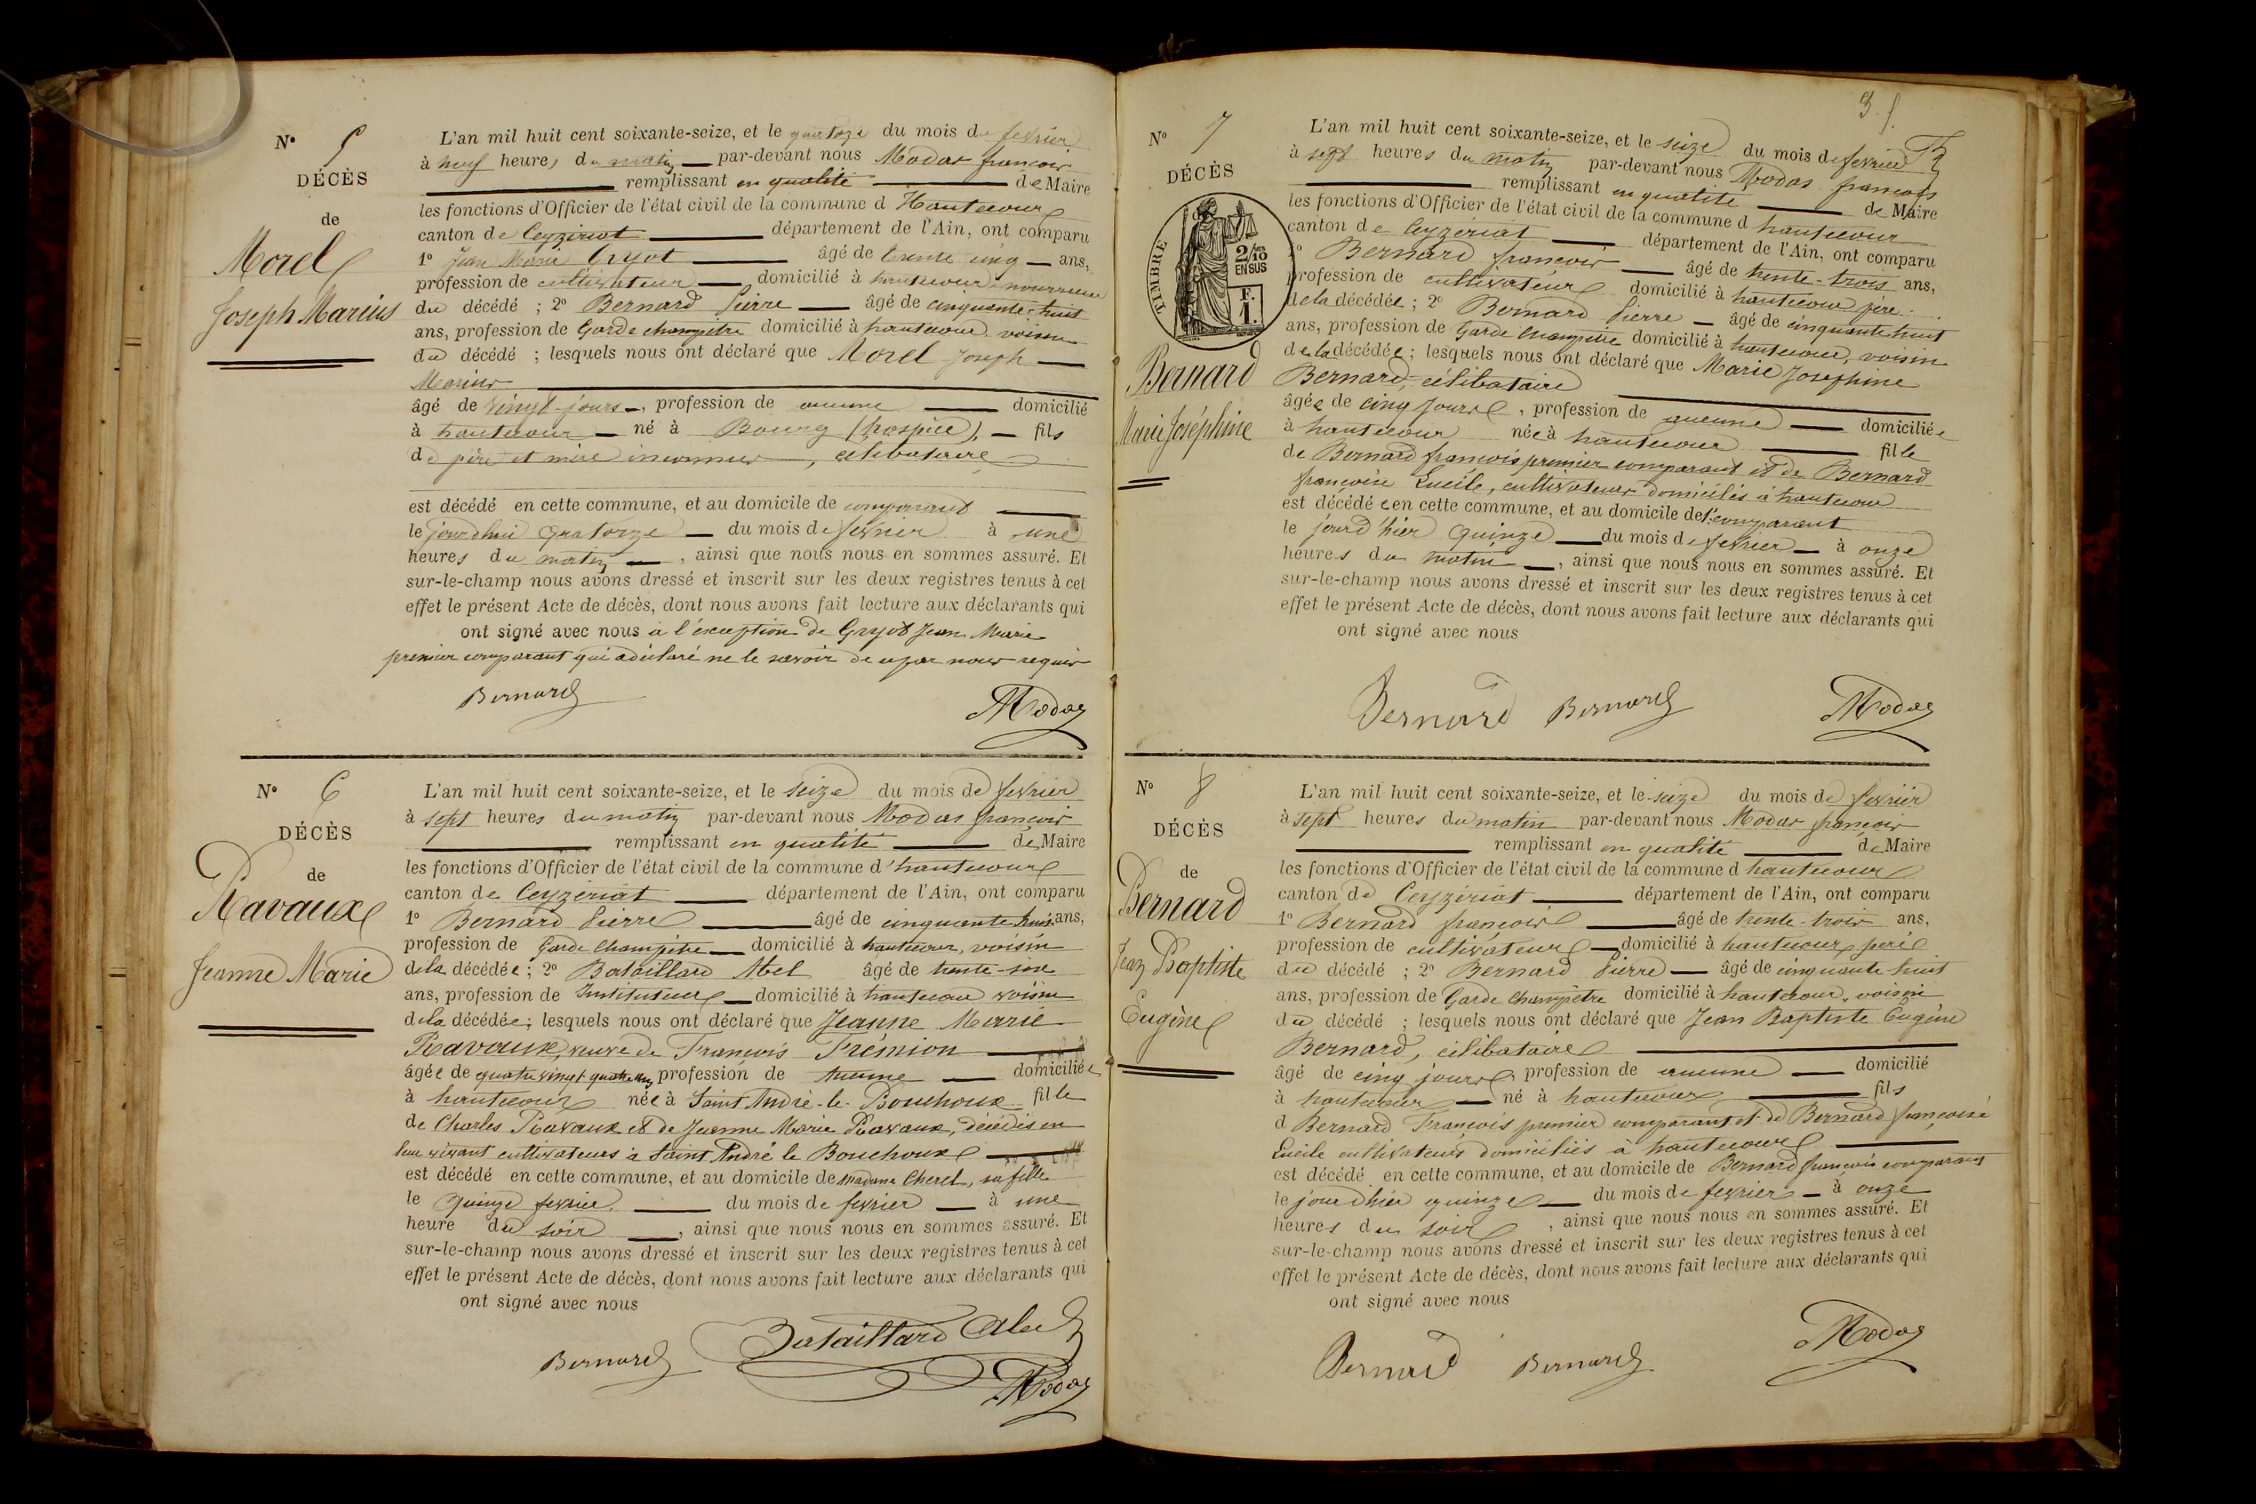 N° 5
DÉCÈS
de
Morel
Joseph Marius
L'an mil huit cent soixante-seize, et le quatorze du mois de fevrier
à neuf heures du matin par-devant nous Modas francois
remplissant en qualité de Maire
les fonctions d'Officier de l'état civil de la commune d Hautecour
canton de Ceyzériat département de l'Ain, ont comparu
1° Jean Marie Gryot âgé de trente cinq ans,
profession de cultivateur domicilié à hautecour nourricier
du décédé ; 2° Bernard Pierre âgé de cinquante-huit
ans, profession de Garde champêtre domicilié à hautecour voisin
du décédé ; lesquels nous ont déclaré que Morel Joseph
Marius
âgé de vingt-jours, profession de aucune domicilié
à hautecour né à Bourg (hospice), fils
de père et mère inconnus, célibataire
est décédé en cette commune, et au domicile de comparant
le jourdhui quatorze du mois de fevrier à une
heures du matin, ainsi que nous nous en sommes assuré. Et
sur-le-champ nous avons dressé et inscrit sur les deux registres tenus à cet
effet le présent Acte de décès, dont nous avons fait lecture aux déclarants qui
ont signé avec nous à l'exception de Gryot Jean Marie
premier comparant qui a déclaré ne le savoir de ce par nous requis
Bernard Modas
N° 6
DÉCÈS
de
Ravaux
Jeanne Marie
L'an mil huit cent soixante-seize, et le seize du mois de fevrier
à sept heures du matin par-devant nous Modas francois
remplissant en qualité de Maire
les fonctions d'Officier de l'état civil de la commune d'hautecour
canton de Ceyzériat département de l'Ain, ont comparu
1° Bernard Pierre âgé de cinquante huit ans,
profession de Garde Champêtre domicilié à hautecour, voisin
de la décédée ; 2° Bataillard Abel âgé de trente-six
ans, profession de Instituteur domicilié à hautecour voisin
de la décédée ; lesquels nous ont déclaré que Jeanne Marie
Ravaux, veuve de François Frémion
âgée de quatre vingt quatre ans profession de aucune domiciliée
à hautecour née à Saint André-le-Bouchoux fille
de Charles Ravaux et de Jeanne Marie Ravaux, décédés en
leur vivant cultivateurs à Saint André le Bouchoux
est décédé en cette commune, et au domicile de madame Cheret, sa fille
le quinze fevrier du mois de fevrier à une
heure du soir, ainsi que nous nous en sommes assuré. Et
sur-le-champ nous avons dressé et inscrit sur les deux registres tenus à cet
effet le présent Acte de décès, dont nous avons fait lecture aux déclarants qui
ont signé avec nous
Bernard Bataillard Abel
Modas
3.
N° 7
DÉCÈS
TIMBRE
2/10 EN SUS
F. 1.
Bernard
Marie Joséphine
L'an mil huit cent soixante-seize, et le seize du mois de fevrier
à sept heures du matin par-devant nous Modas francois
remplissant en qualité de Maire
les fonctions d'Officier de l'état civil de la commune d hautecour
canton de Ceyzériat département de l'Ain, ont comparu
1° Bernard françois âgé de trente-trois ans,
profession de cultivateur domicilié à hautecour père
de la décédée ; 2° Bernard Pierre âgé de cinquante huit
ans, profession de Garde Champêtre domicilié à hautecour, voisin
de la décédée ; lesquels nous ont déclaré que Marie Josephine
Bernard, célibataire
âgée de cinq jours, profession de aucune domiciliée
à hautecour née à hautecour fille
de Bernard francois premier comparant et de Bernard
françoise Lucile, cultivateurs domiciliés à hautecour
est décédée en cette commune, et au domicile de comparant
le jourd'hier quinze du mois de fevrier à onze
heures du matin, ainsi que nous nous en sommes assuré. Et
sur-le-champ nous avons dressé et inscrit sur les deux registres tenus à cet
effet le présent Acte de décès, dont nous avons fait lecture aux déclarants qui
ont signé avec nous
Bernard Bernard Modas
N° 8
DÉCÈS
de
Bernard
Jean Baptiste
Eugène
L'an mil huit cent soixante-seize, et le seize du mois de fevrier
à sept heures du matin par-devant nous Modas françois
remplissant en qualité de Maire
les fonctions d'Officier de l'état civil de la commune d hautecour
canton de Ceyzériat département de l'Ain, ont comparu
1° Bernard françois âgé de trente-trois ans,
profession de cultivateur domicilié à hautecour, père
du décédé ; 2° Bernard Pierre âgé de cinquante huit
ans, profession de Garde Champêtre domicilié à hautecour, voisin
du décédé ; lesquels nous ont déclaré que Jean Baptiste Eugène
Bernard, célibataire
âgé de cinq jours profession de aucune domicilié
à hautecour né à hautecour fils
d Bernard François premier comparant et de Bernard françoise
Lucile cultivateurs domiciliés à hautecour
est décédé en cette commune, et au domicile de Bernard françois comparant
le jourdhier quinze du mois de fevrier à onze
heures du soir, ainsi que nous nous en sommes assuré. Et
sur-le-champ nous avons dressé et inscrit sur les deux registres tenus à cet
effet le présent Acte de décès, dont nous avons fait lecture aux déclarants qui
ont signé avec nous
Bernard Bernard Modas